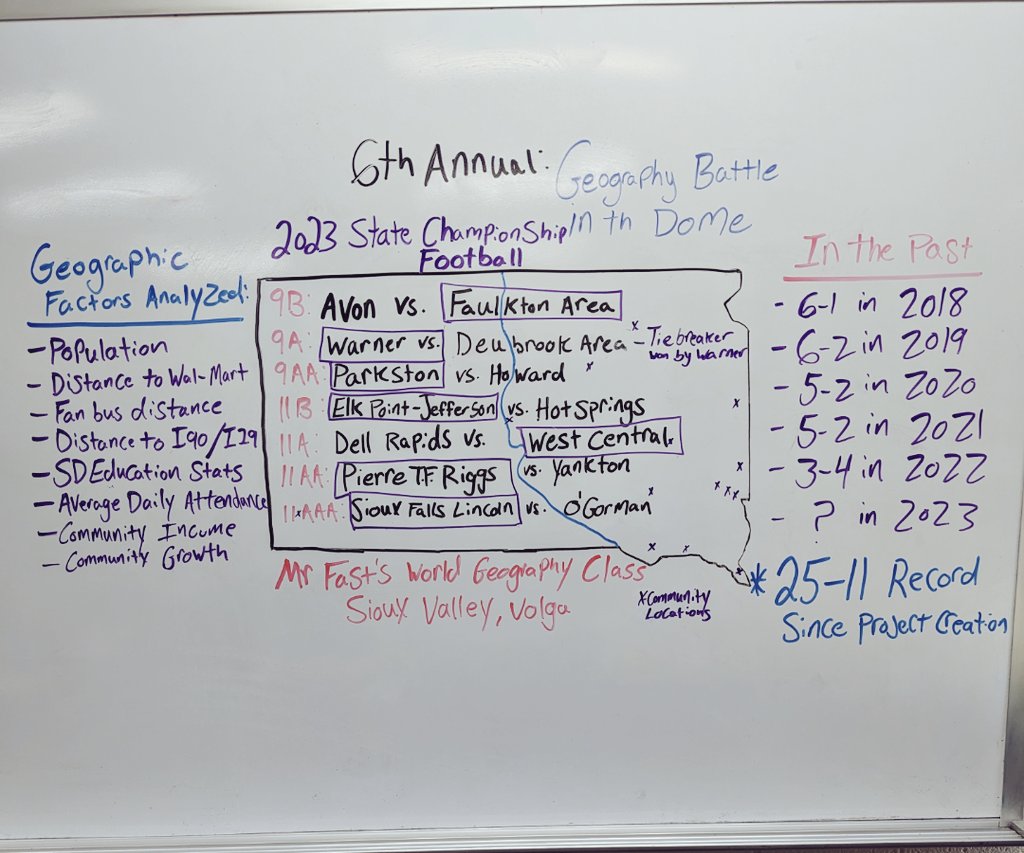 6th Annual: Geography Battle
in th Dome
2023 State Championship
Football
Geographic
Factors Analyzed:
- Population
- Distance to Wal-Mart
- Fan bus distance
- Distance to I90/I29
- SD Education Stats
- Average Daily Attendance
- Community Income
- Community Growth
9B: Avon vs. Faulkton Area
9A: Warner vs. Deubrook Area - Tiebreaker
won by Warner
9AA: Parkston vs. Howard
11B: Elk Point-Jefferson vs. Hot Springs
11A: Dell Rapids vs. West Central
11AA: Pierre T.F. Riggs vs. Yankton
11AAA: Sioux Falls Lincoln vs. O'Gorman
Mr Fast's World Geography Class
Sioux Valley, Volga
x Community
Locations
In the Past
- 6-1 in 2018
- 6-2 in 2019
- 5-2 in 2020
- 5-2 in 2021
- 3-4 in 2022
- ? in 2023
* 25-11 Record
Since Project Creation